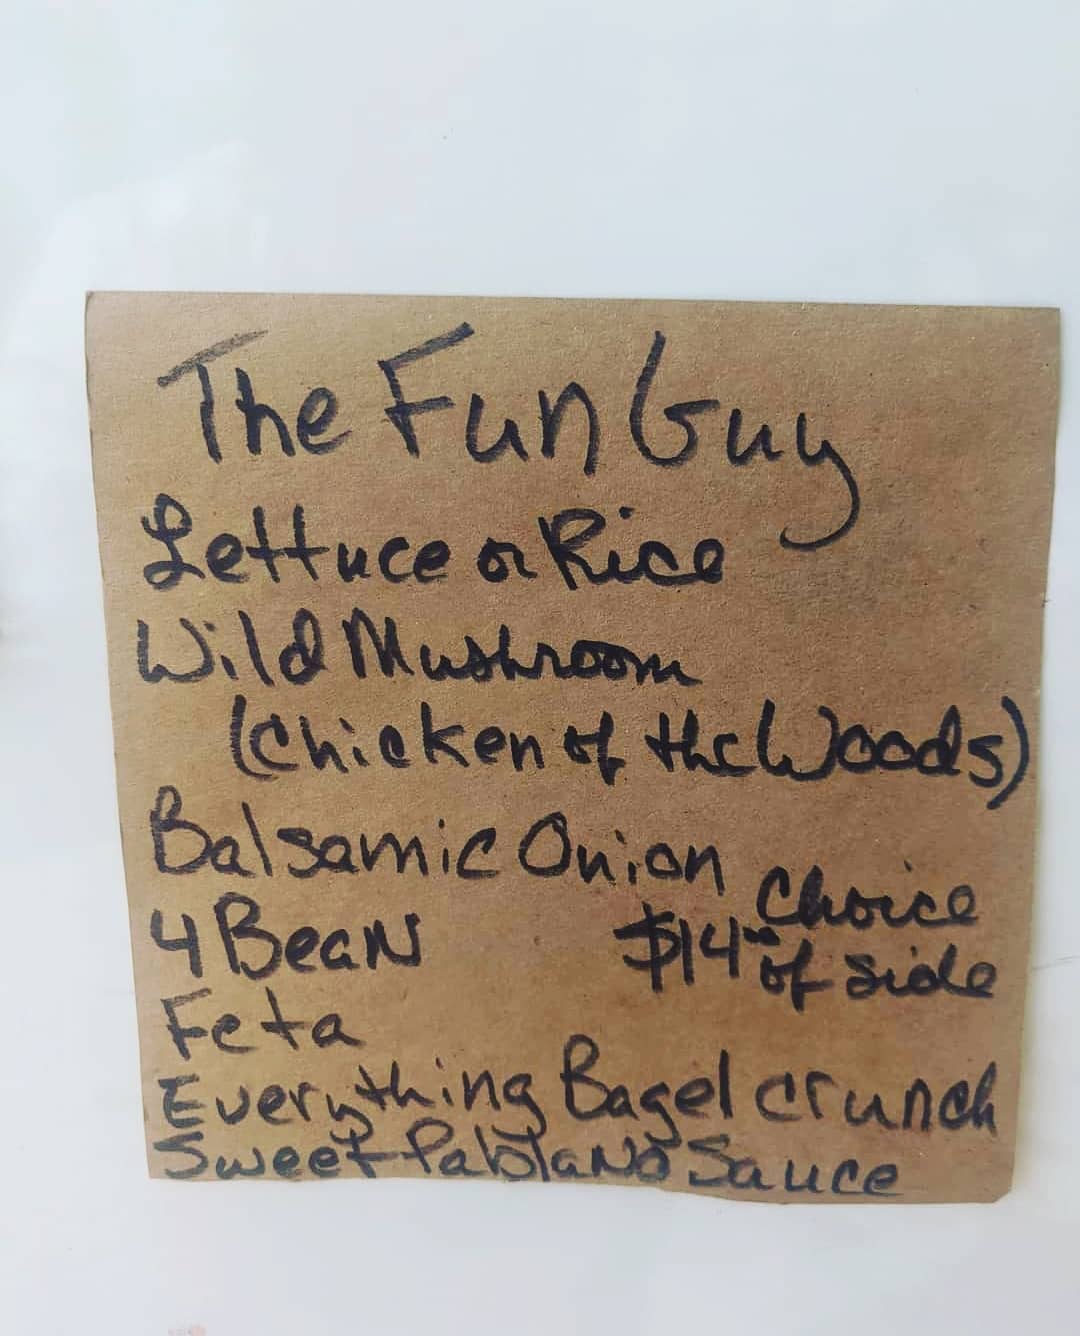 The Fun Guy
Lettuce or Rice
Wild Mushroom
(Chicken of the Woods)
Balsamic Onion
4 Bean
$14.00 Choice
of side
Feta
Everything Bagel crunch
Sweet Pablano Sauce